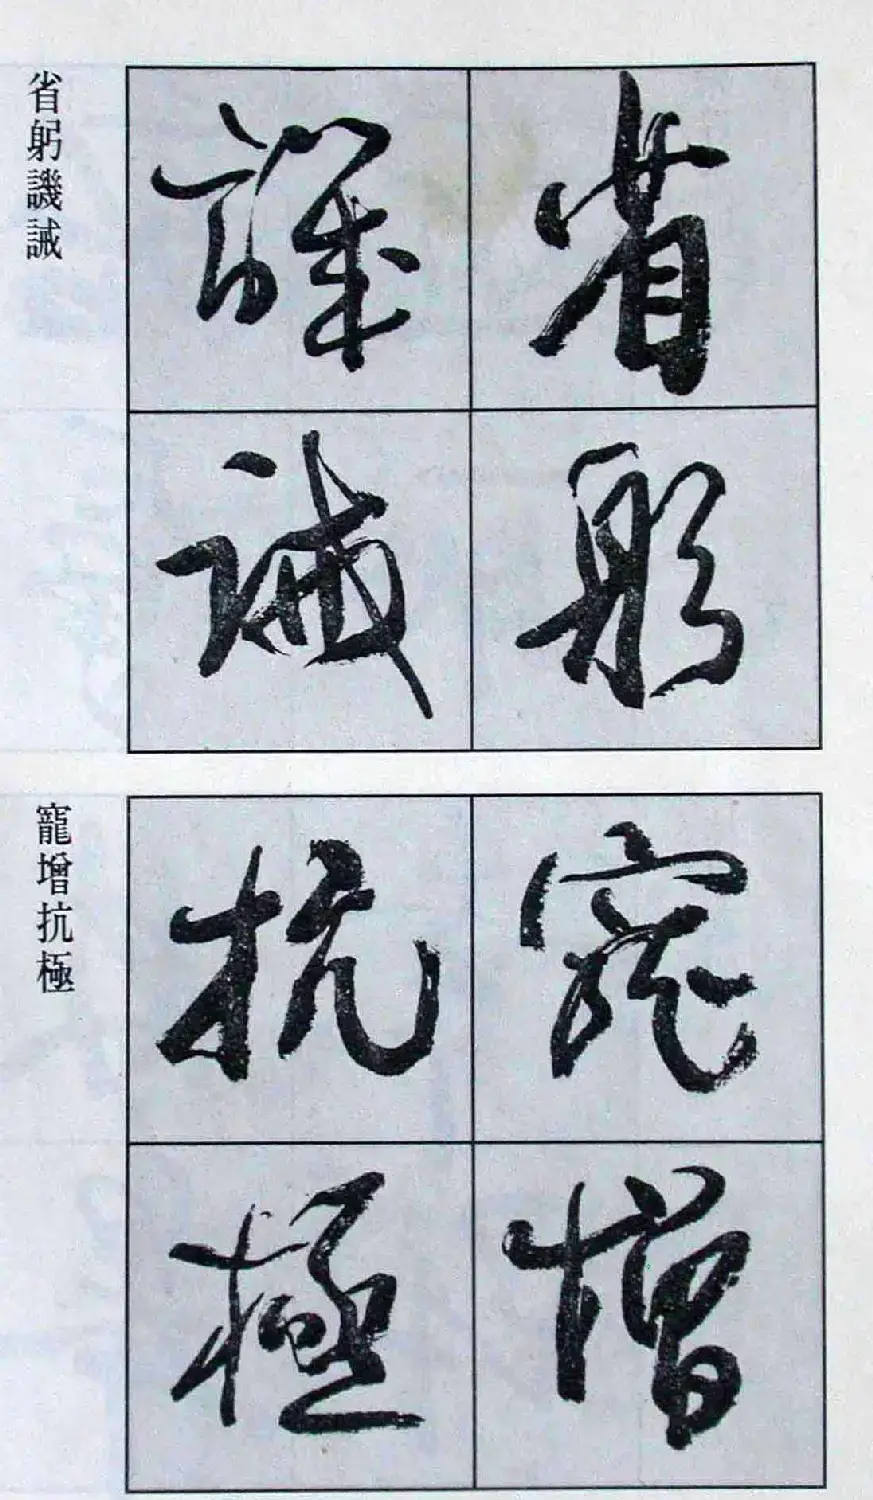 省躬譏誡
省躬
譏誡
寵增抗極
寵增
抗極